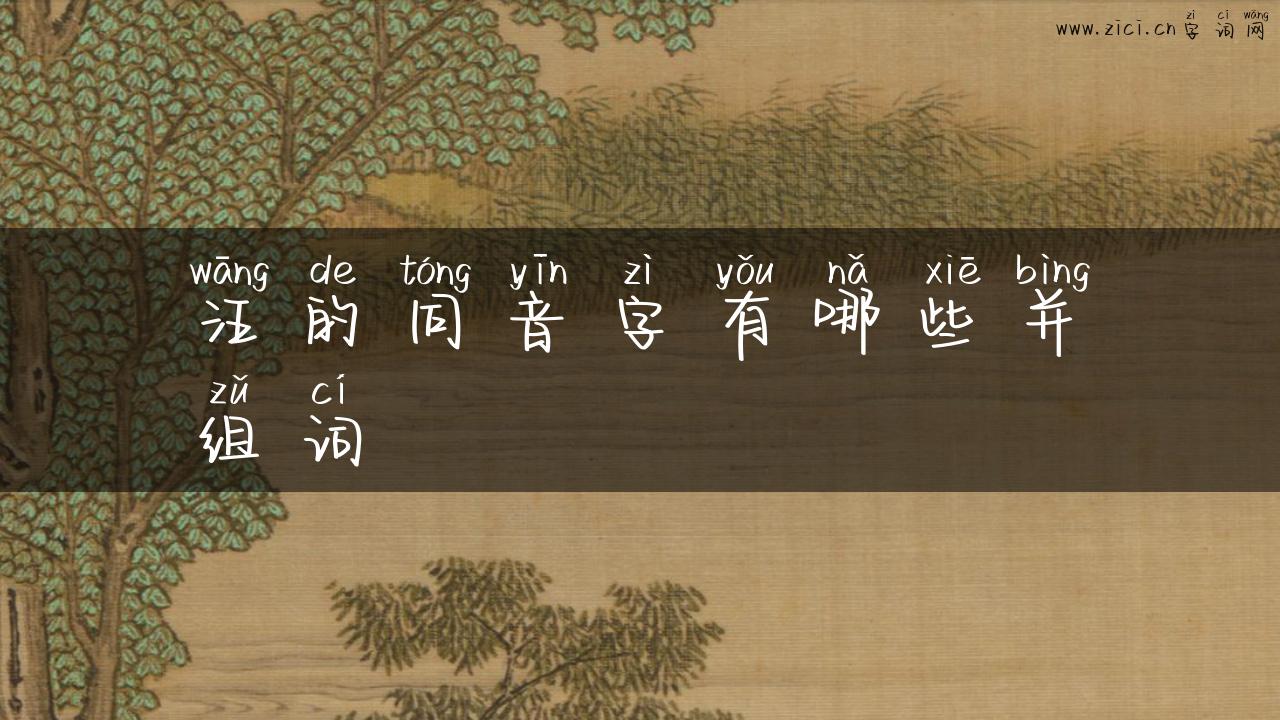 zì cí wǎng
www.zici.cn字词网
wāng de tóng yīn zì yǒu nǎ xiē bìng
汪的同音字有哪些并
zǔ cí
组词